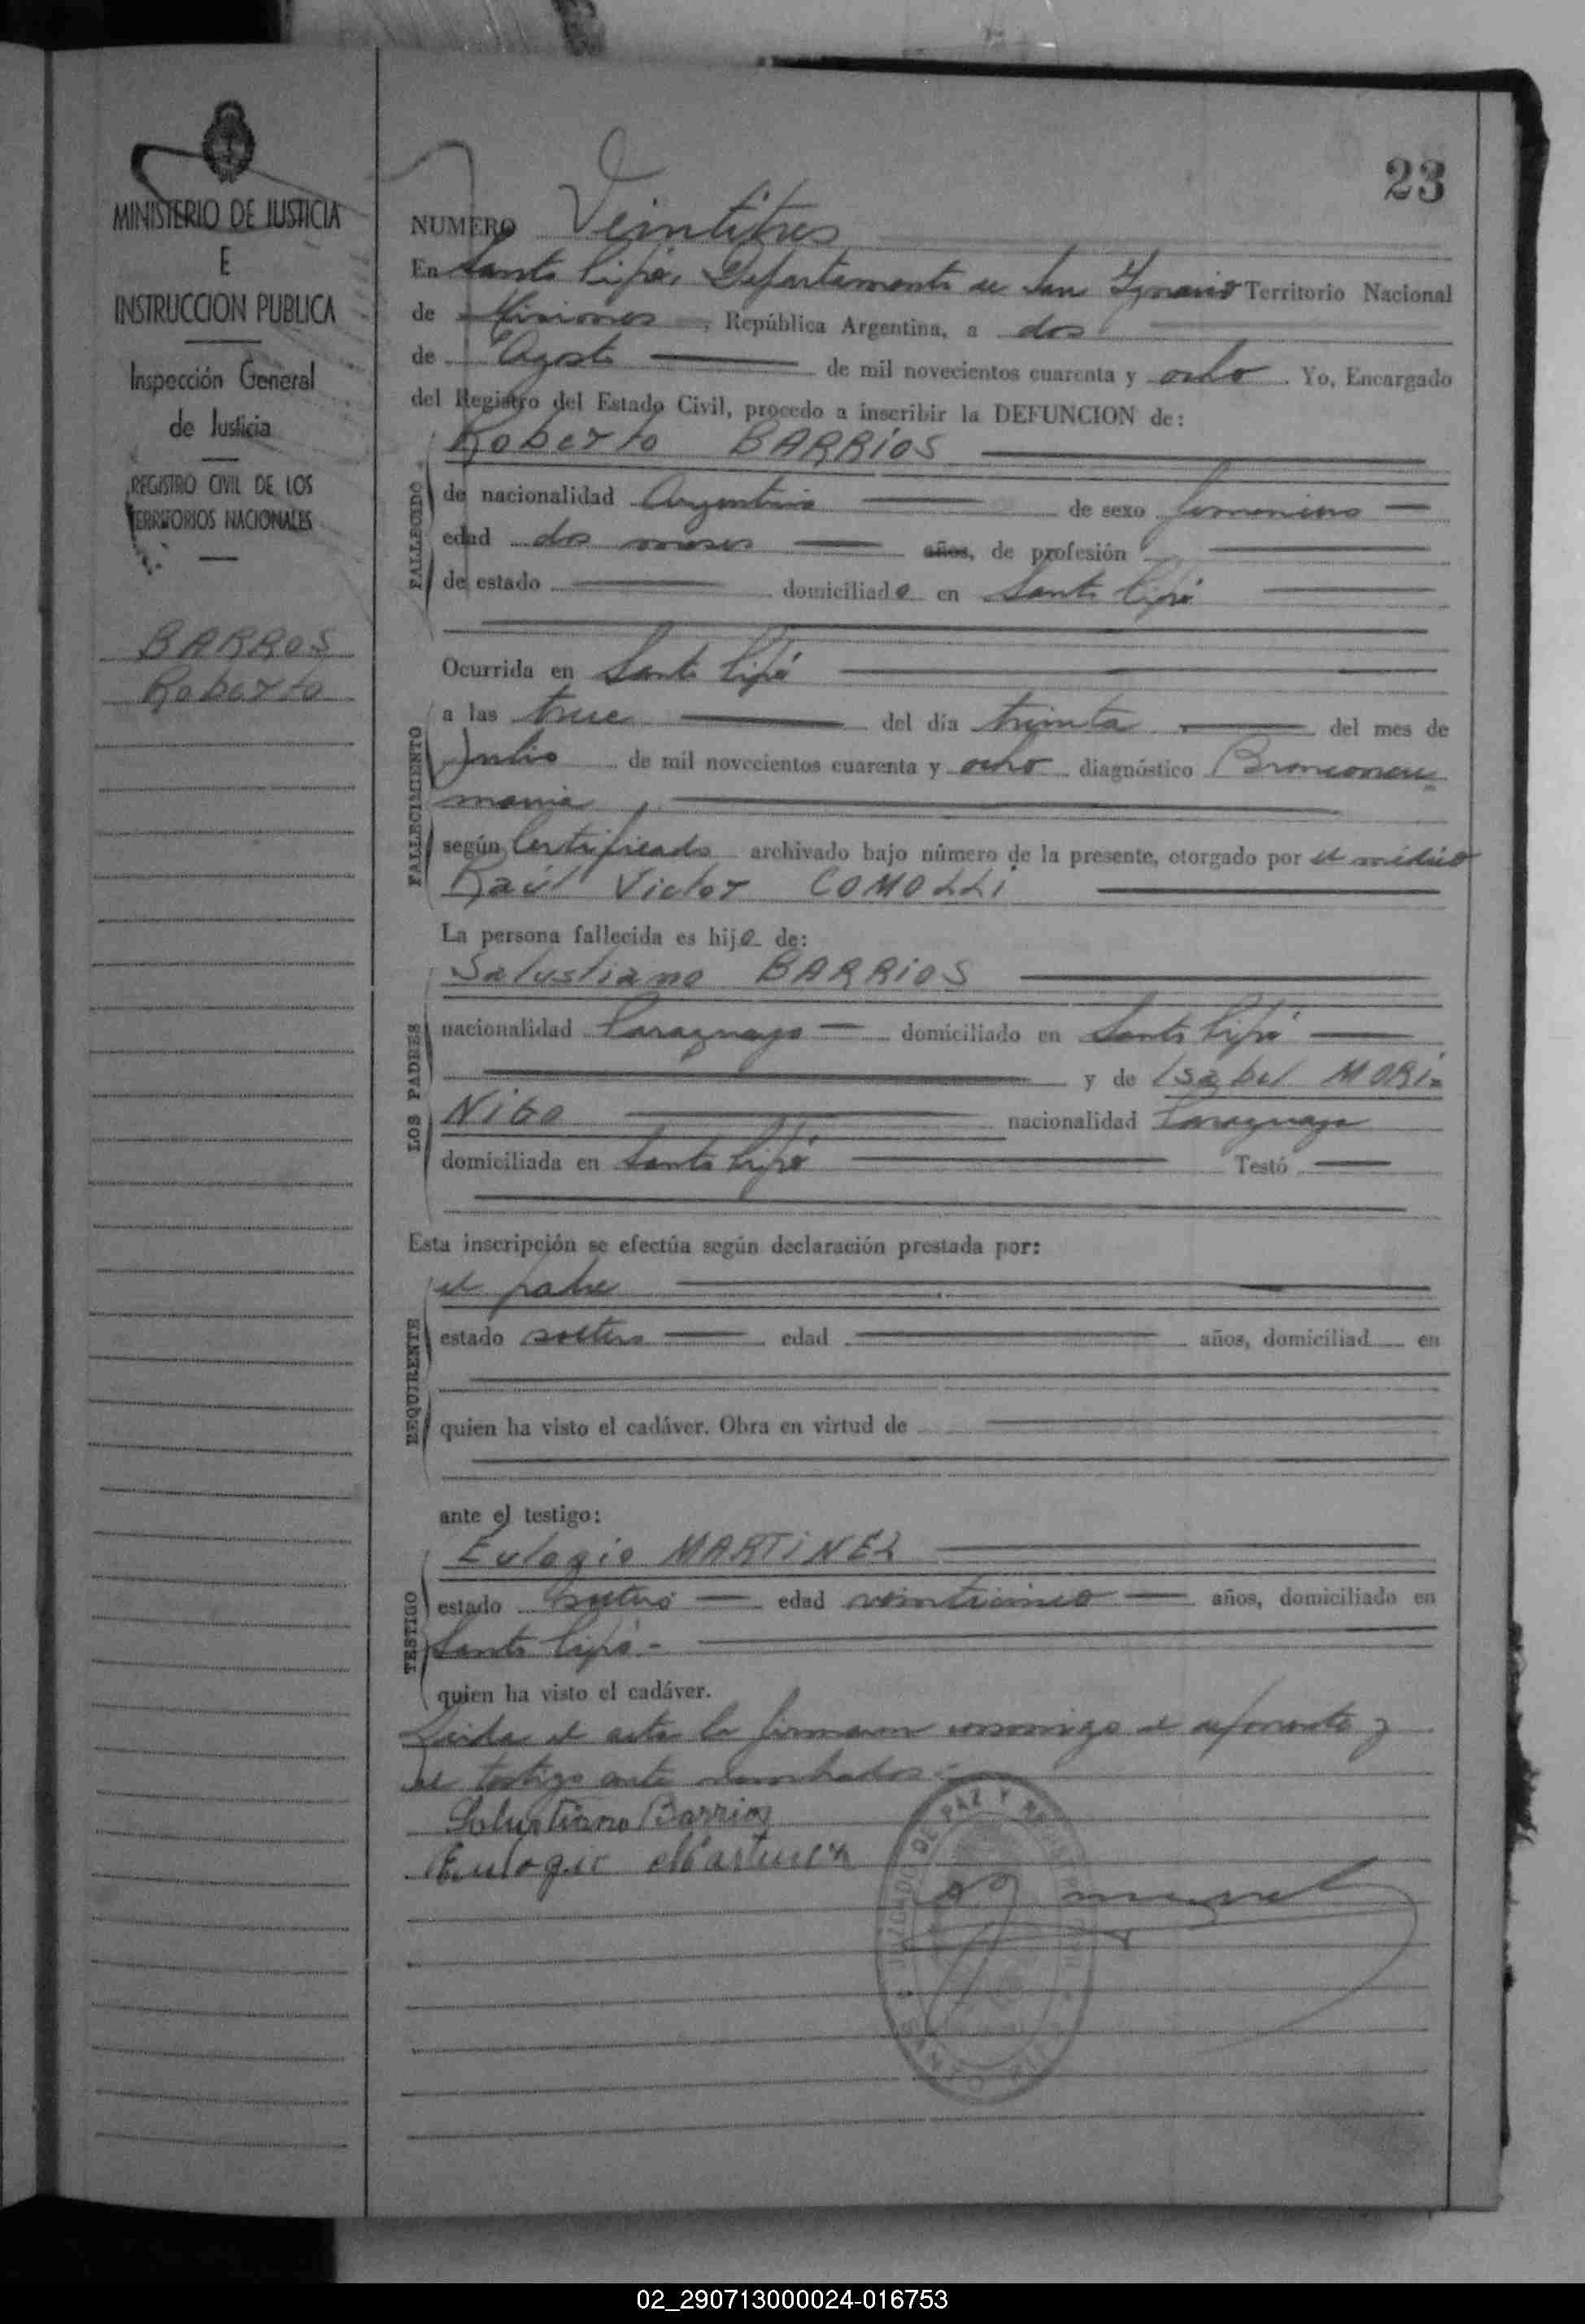 MINISTERIO DE JUSTICIA
E
INSTRUCCION PUBLICA
Inspección General
de Justicia
REGISTRO CIVIL DE LOS
TERRITORIOS NACIONALES
BARROS
Roberto
23
NUMERO Veintitres
En Santo Pipó, Departamento de San Ygnacio Territorio Nacional
de Misiones, República Argentina, a dos
de Agosto de mil novecientos cuarenta y ocho. Yo, Encargado
del Registro del Estado Civil, procedo a inscribir la DEFUNCION de:
Roberto BARRIOS
FALLECIDO
de nacionalidad Argentina de sexo femenino
edad dos meses años, de profesión
de estado domiciliado en Santo Pipó
Ocurrida en Santo Pipó
FALLECIMIENTO
a las trece del día treinta del mes de
Julio de mil novecientos cuarenta y ocho diagnóstico Bronconeu
monia
según Certificado archivado bajo número de la presente, otorgado por el médico
Raúl Victor COMOLLI
La persona fallecida es hijo de:
LOS PADRES
Salustiano BARRIOS
nacionalidad Paraguayo domiciliado en Santo Pipó
y de Isabel MORI=
NIGO nacionalidad Paraguaya
domiciliada en Santo Pipó Testó
Esta inscripción se efectúa según declaración prestada por:
REQUIRENTE
el padre
estado soltero edad años, domiciliad en
quien ha visto el cadáver. Obra en virtud de
ante el testigo:
TESTIGO
Eulogio MARTINEZ
estado soltero edad veinticinco años, domiciliado en
Santo Pipó.-
quien ha visto el cadáver.
Leida el acta la firmaron conmigo el deponente y
el testigo ante nombrados
Salustiano Barrios
Eulogio Martinez
JUZGADO DE PAZ Y
02_290713000024-016753